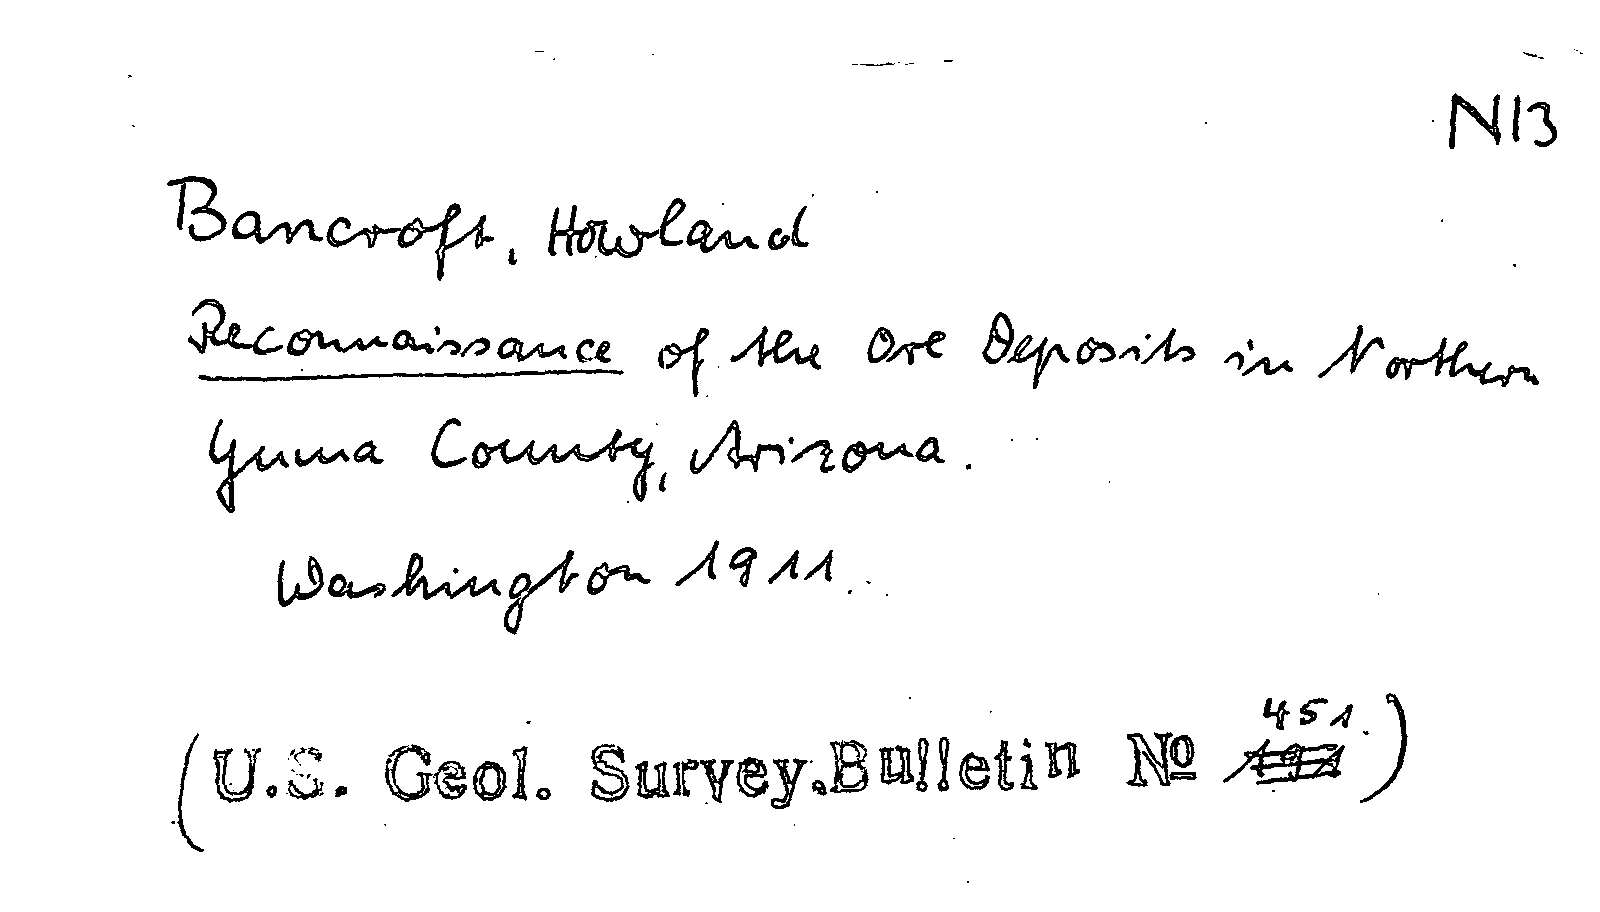 N13
Bancroft, Howland
Reconnaissance of the Ore Deposits in Northern
Yuma County, Arizona.
Washington 1911.
451.
(U.S. Geol. Survey. Bulletin No )